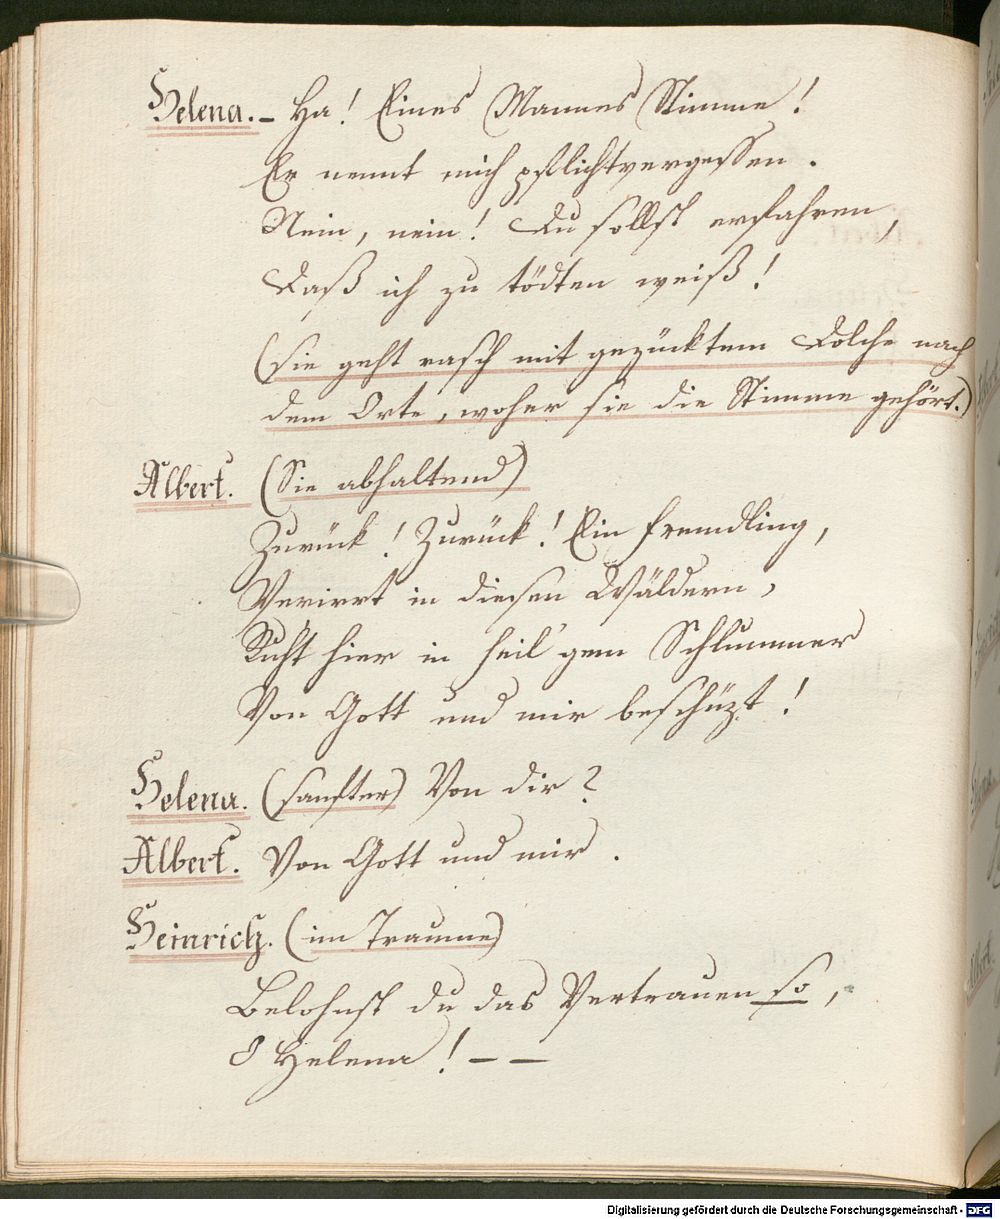 Helena. – Ha! Eines Mannes Stimme!
Er nennt mich pflichtvergessen.
Nein, nein! Du sollst erfahren,
Daß ich zu tödten weiß!
(sie geht rasch mit gezücktem Dolche nach
dem Orte, woher sie die Stimme gehört.)
Albert. (Sie abhaltend)
Zurück! Zurück! Ein Fremdling,
Verirrt in diesen Wäldern,
Ruht hier in heil'gem Schlummer
Von Gott und mir beschüzt!
Helena. (sanfter) Von dir?
Albert. Von Gott und mir.
Heinrich. (im Traume)
Belohnst du das Vertrauen so,
O Helena! – –
Digitalisierung gefördert durch die Deutsche Forschungsgemeinschaft - DFG